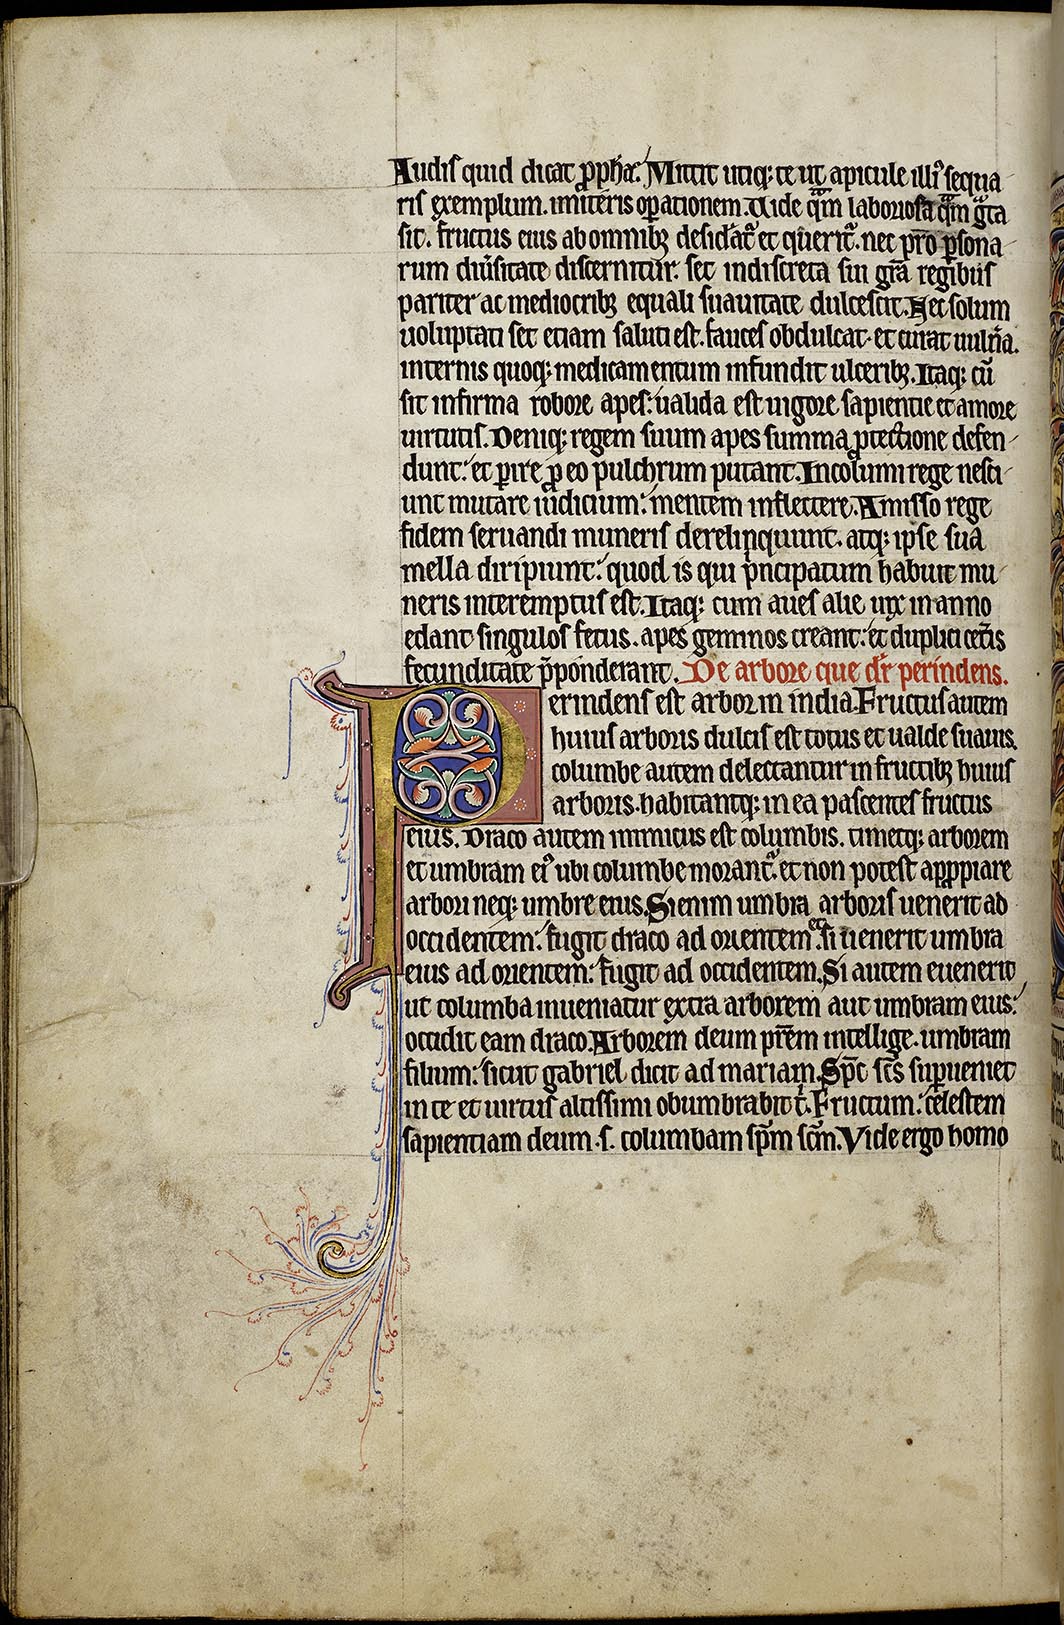 Audis quid dicat ꝓph̄a. Mittit utiq; te ut apicule illiꝰ sequa
ris exemplum. imiteris oꝑationem. Uide qͣm laboriosa qͣm gͣta
sit. fructus eius ab omnibꝫ desidat᷑ et querit᷑. nec pro ꝑsona
rum diu̾sitate discernitur. set indiscreta sui gr̄a regibus
pariter ac mediocribꝫ equali suauitate dulcescit. Nec solum
uoluptati set etiam saluti est. fauces obdulcat. et curat uuln̄a.
internis quoq; medicamentum infundit ulceribꝫ. Itaq; cū
sit infirma robore apes. ualida est uigore sapientie et amore
uirtutis. Deniq; regem suum apes summa ꝓtectione defen
dunt. et ꝑire ꝓ eo pulchrum putant. Incolumi rege nesci
unt mutare iudicium. mentem inflectere. Amisso rege
fidem seruandi muneris derelinquunt. atq; ipse sua
mella diripiunt. quod is qui p̄ncipatum habuit mu
neris interemptus est. Itaq; cum aues alie uix in anno
edant singulos fetus. apes geminos creant. et duplici cet̄is
fecunditate p̄ponderant. De arbore que dr̄ perindens.
Perindens est arbor in india. Fructus autem
huius arboris dulcis est totus et ualde suauis.
columbe autem delectantur in fructibꝫ huius
arboris. habitantq; in ea pascentes fructus
eius. Draco autem inimicus est columbis. timetq; arborem
et umbram eiꝰ ubi columbe morant᷑. et non potest apꝓpiare
arbori neq; umbre eius. Si enim umbra arboris uenerit ad
occidentem. fugit draco ad orientem. et si uenerit umbra
eius ad orientem. fugit ad occidentem. Si autem euenerit
ut columba inueniatur extra arborem aut umbram eius.
occidit eam draco. Arborem deum prēm intellige. umbram
filium. sicut gabriel dicit ad mariam. Spc̄ sc̄s suꝑueniet
in te et uirtus altissimi obumbrabit t̄. Fructum. celestem
sapientiam deum .s. columbam sp̄m sc̄m. Vide ergo homo